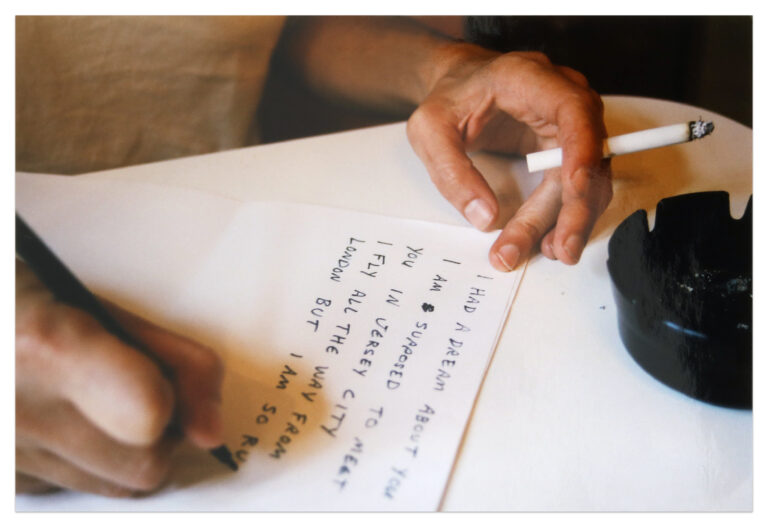 I HAD A DREAM ABOUT YOU
I AM SUPPOSED TO MEET
YOU IN JERSEY CITY
I FLY ALL THE WAY FROM
LONDON BUT I AM SO RU